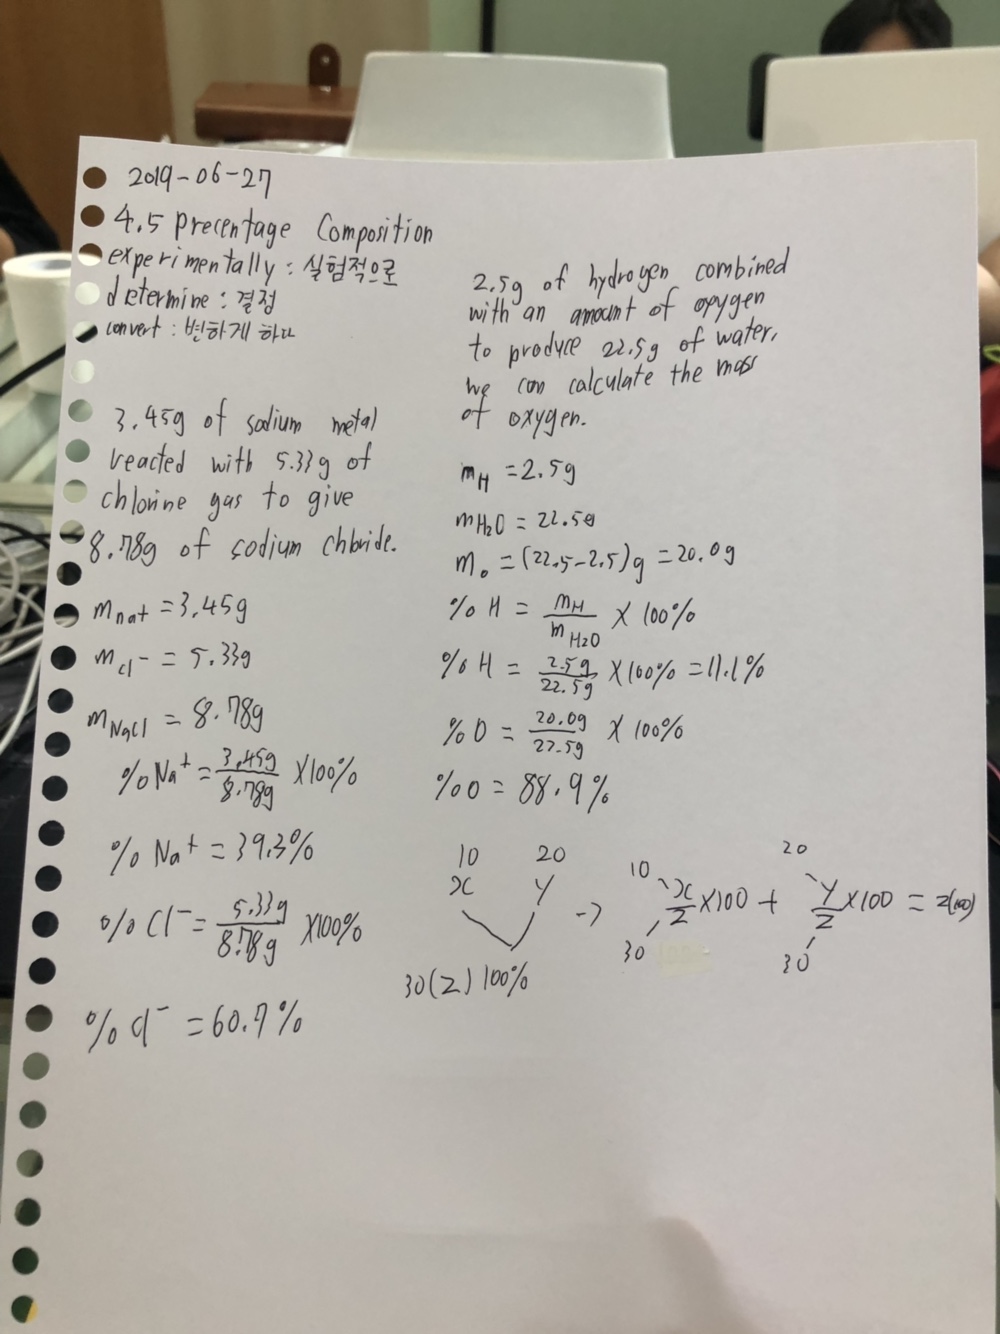 2019-06-27
4.5 Precentage Composition
experimentally : 실험적으로
determine : 결정
convert : 변하게 하다
3.45g of sodium metal
reacted with 5.33g of
chlorine gas to give
8.78g of sodium chloride.
mNa+ = 3.45g
mCl- = 5.33g
mNaCl = 8.78g
%Na+ = 3.45g/8.78g X100%
%Na+ = 39.3%
%Cl- = 5.33g/8.78g X100%
%Cl- = 60.7%
2.5g of hydrogen combined
with an amount of opygen
to produce 22.5g of water,
we can calculate the mass
of oxygen.
mH = 2.5g
mH2O = 22.5g
mo = (22.5-2.5)g = 20.0g
%H = mH/mH2O X 100%
%H = 2.5g/22.5g X100% = 11.1%
%O = 20.0g/22.5g X 100%
%O = 88.9%
10 20
x y
30(Z) 100%
→ x/Z X100 + y/Z X100 = z(100)
10 20
30 30